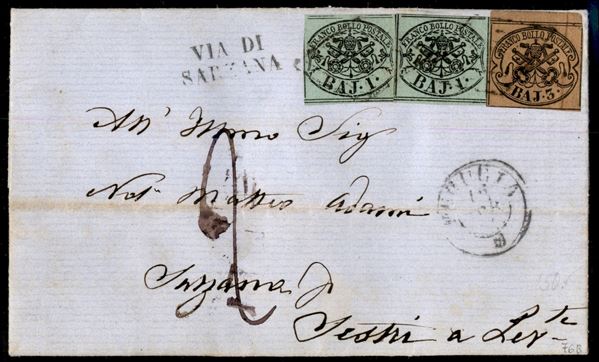 VIA DI
SARZANA
FRANCO BOLLO POSTALE
BAJ. 1.
FRANCO BOLLO POSTALE
BAJ. 1.
FRANCO BOLLO POSTALE
BAJ. 3.
All' Illmo Sig
Not Matteo Adami
PERUGIA
Sarzana p
Sestri a Levte
76B